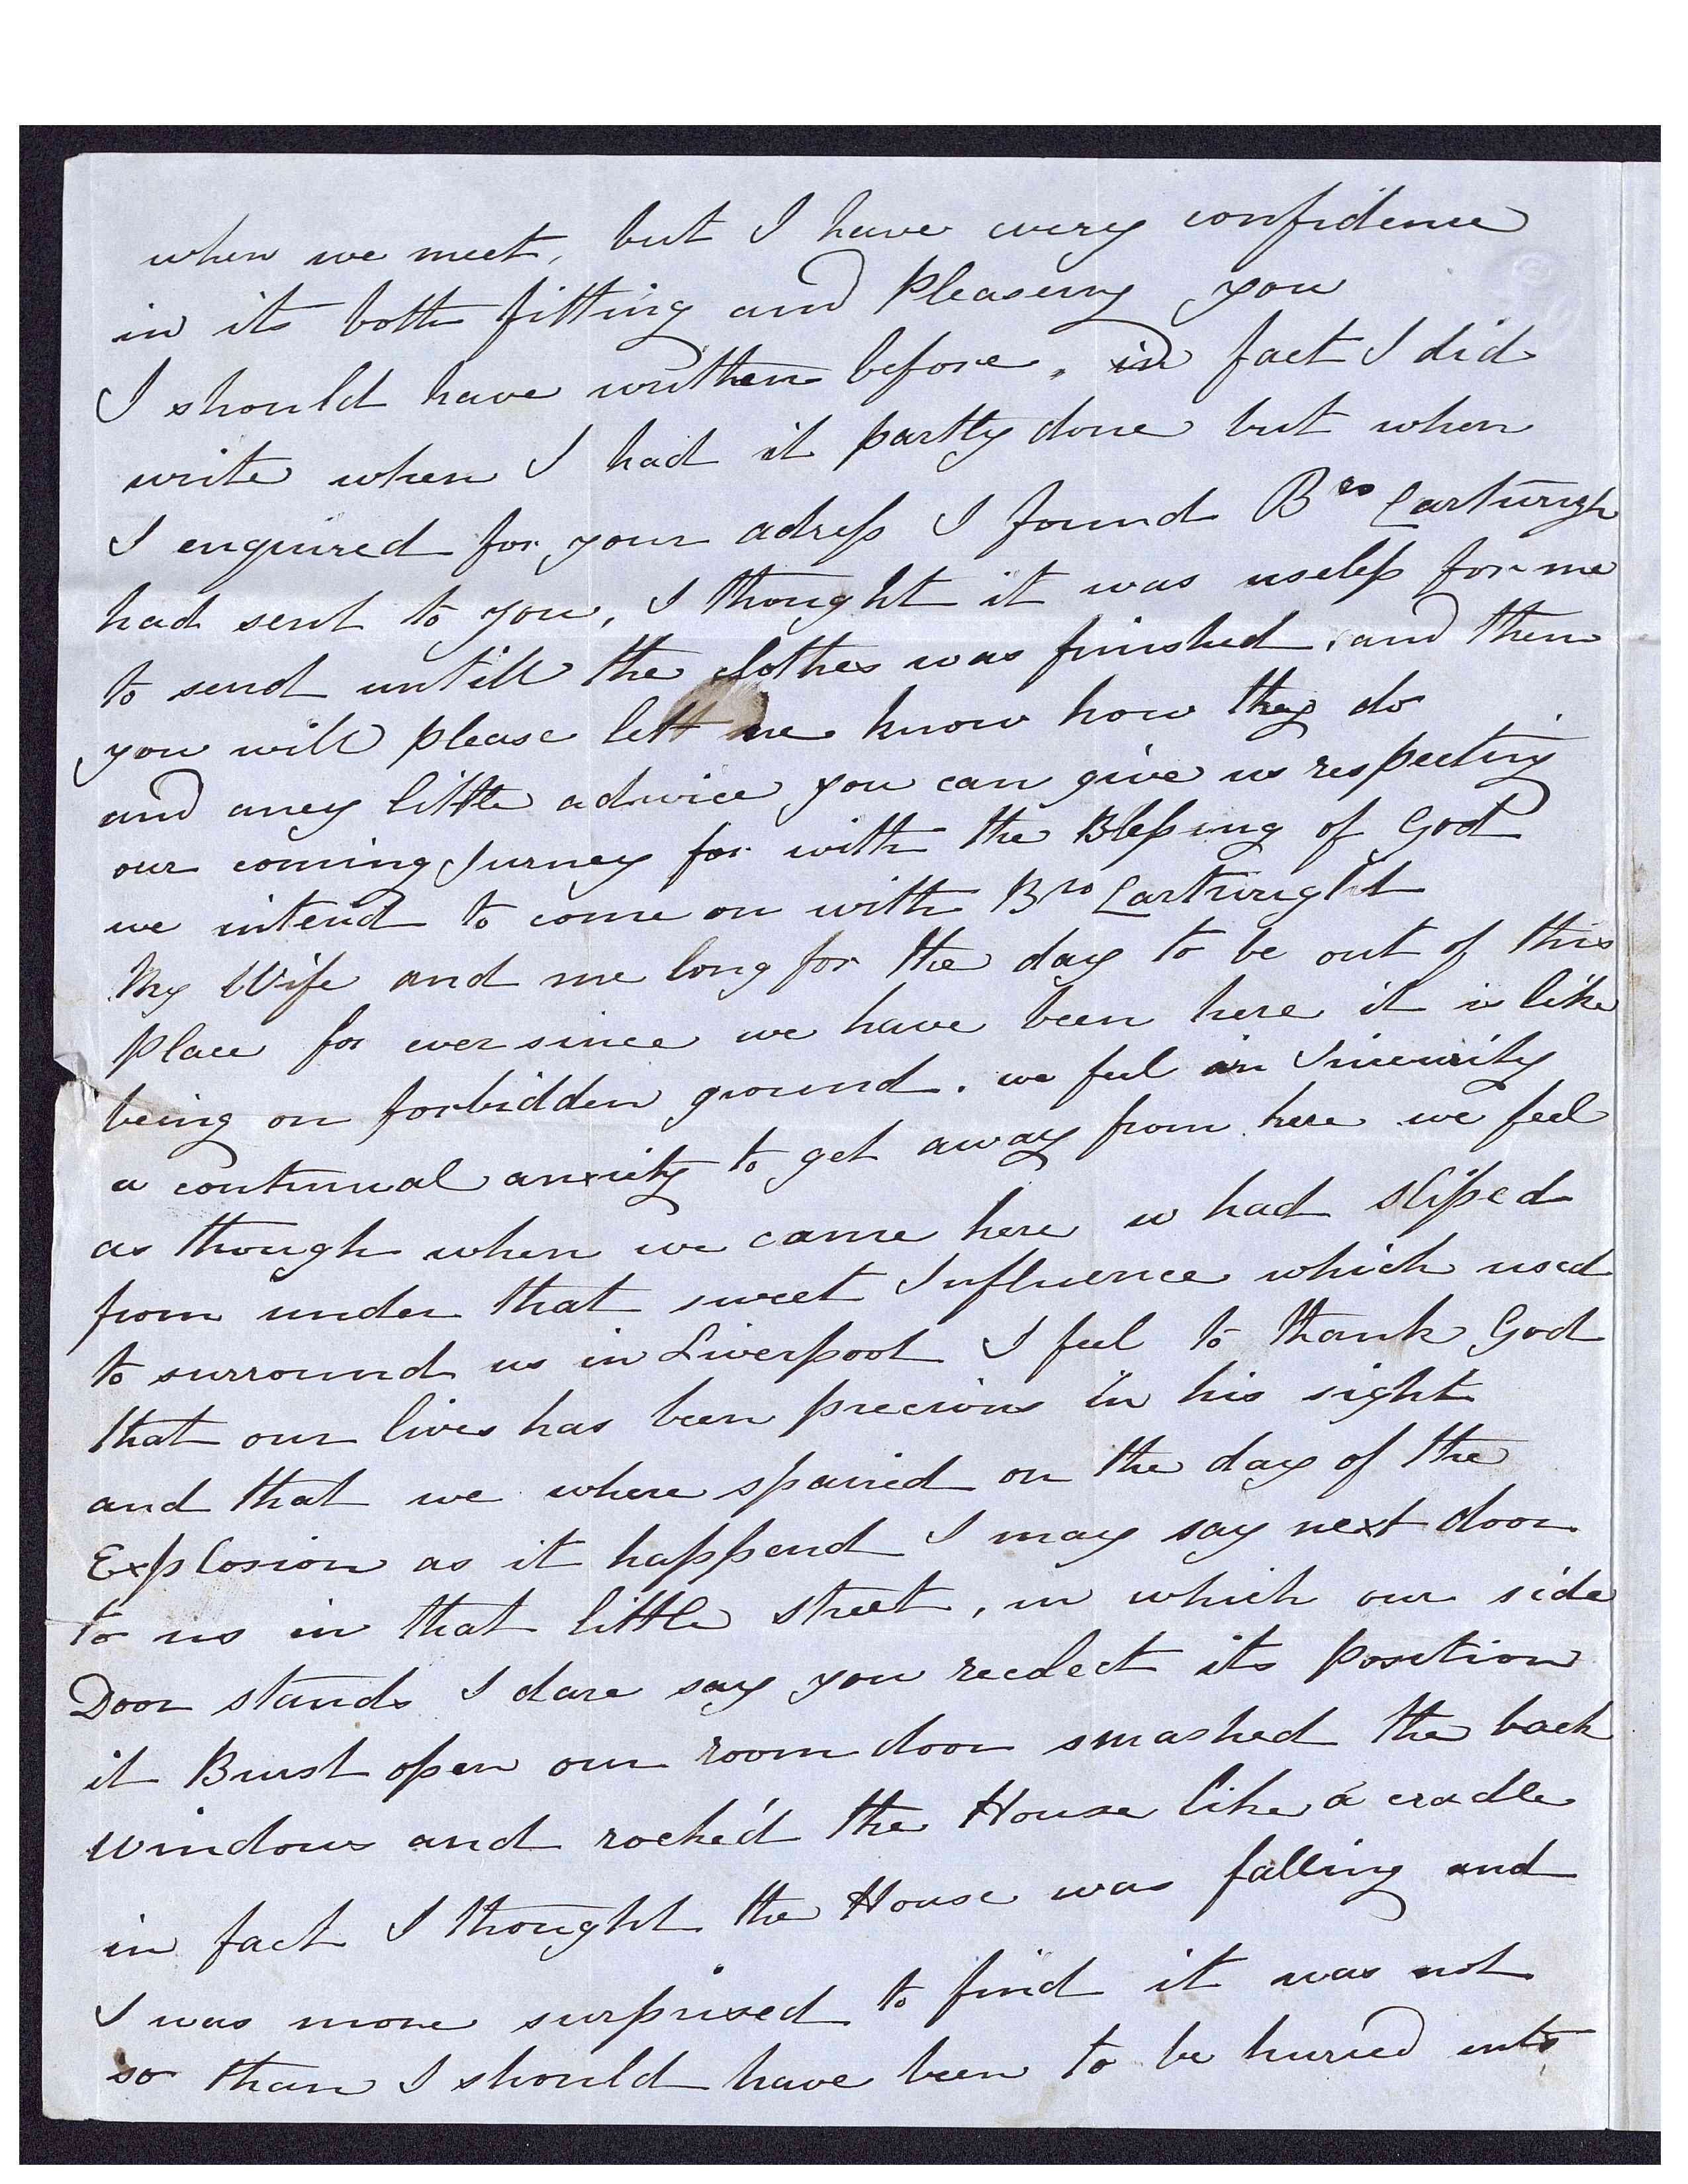 when we meet, but I have every confidence
in its both fitting and Pleaseing you
I should have writhen before, in fact I did
write when I had it partly done but when
I enquired for your adress I found Bro Cartwrigh
had sent to you, I thought it was useless for me
to send untill the clothes was finished, and then
you will please lett me know how they do
and aney little advice you can give us respecting
our coming Jurney for with the Blessing of God
we intend to come on with Bro Cartwright
My Wife and me long for the day to be out of this
place for ever since we have been here it is like
being on forbidden ground. we feel in Sincerity
a continual anxiety to get away from here we feel
as though when we came here w had sliped
from under that sweet Influence which used
to surround us in Liverpool I feel to thank God
that our lives has been precious in his sight
and that we where spaired on the day of the
Explosion as it happend I may say next door
to us in that little street, in which our side
Door stands I dare say you recolect its position
it Burst open our room door smashed the back
windows and rock'd the House like a cradle
in fact I thought the House was falling and
I was more surprised to find it was not
so than I should have been to be huried into